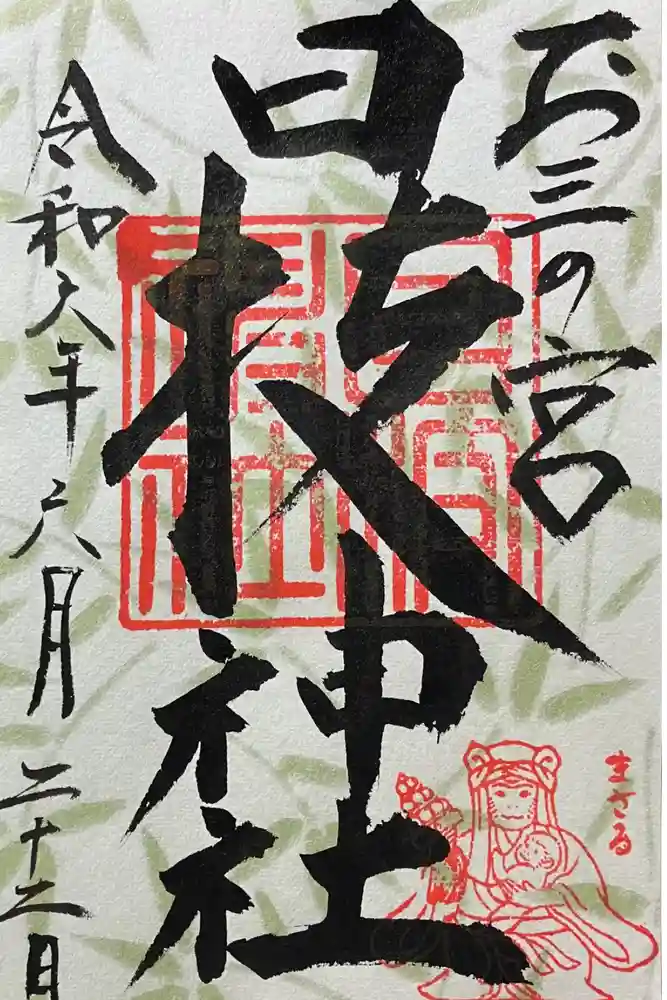 お三の宮
日枝神社
令和六年六月二十二日
まさる